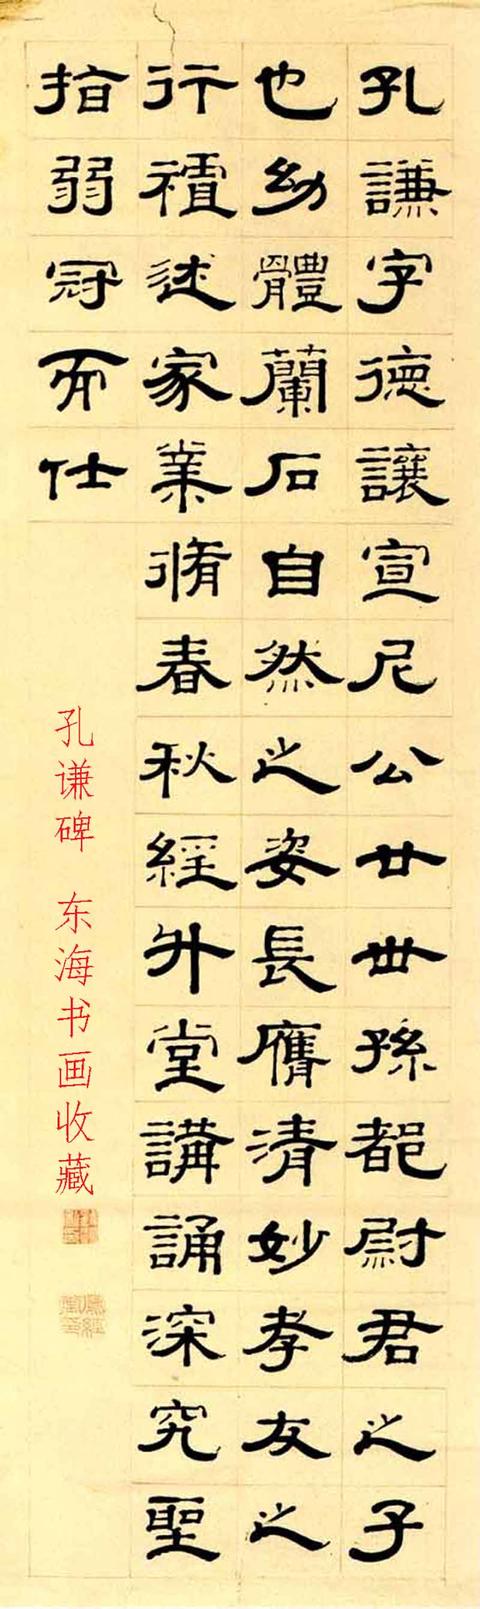 孔謙字德讓宣尼公廿世孫都尉君之子
也幼體蘭石自然之姿長膺清妙孝友之
行禮述家業脩春秋經升堂講誦深究聖
指弱冠而仕
孔谦碑 东海书画收藏